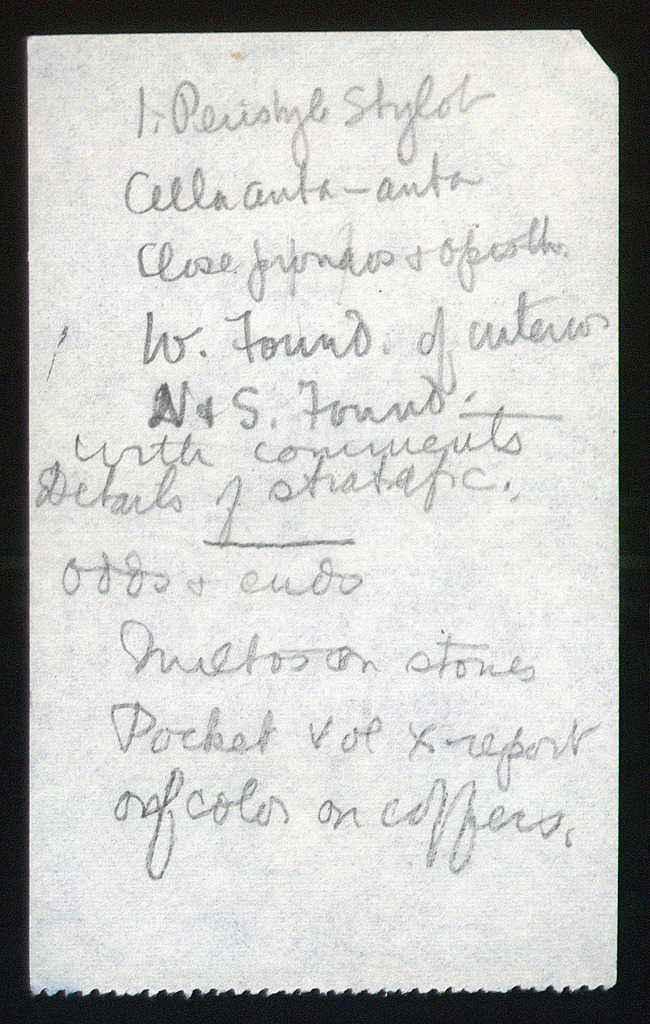 1. Peristyle Stylob
Cella anta - anta
Close pronaos + opisth.
W. Found. of interior
N + S. Found.
with comments
Details of stratafic.
odds + ends
Miltos on stones
Pocket vol x-report
of color on coffers.